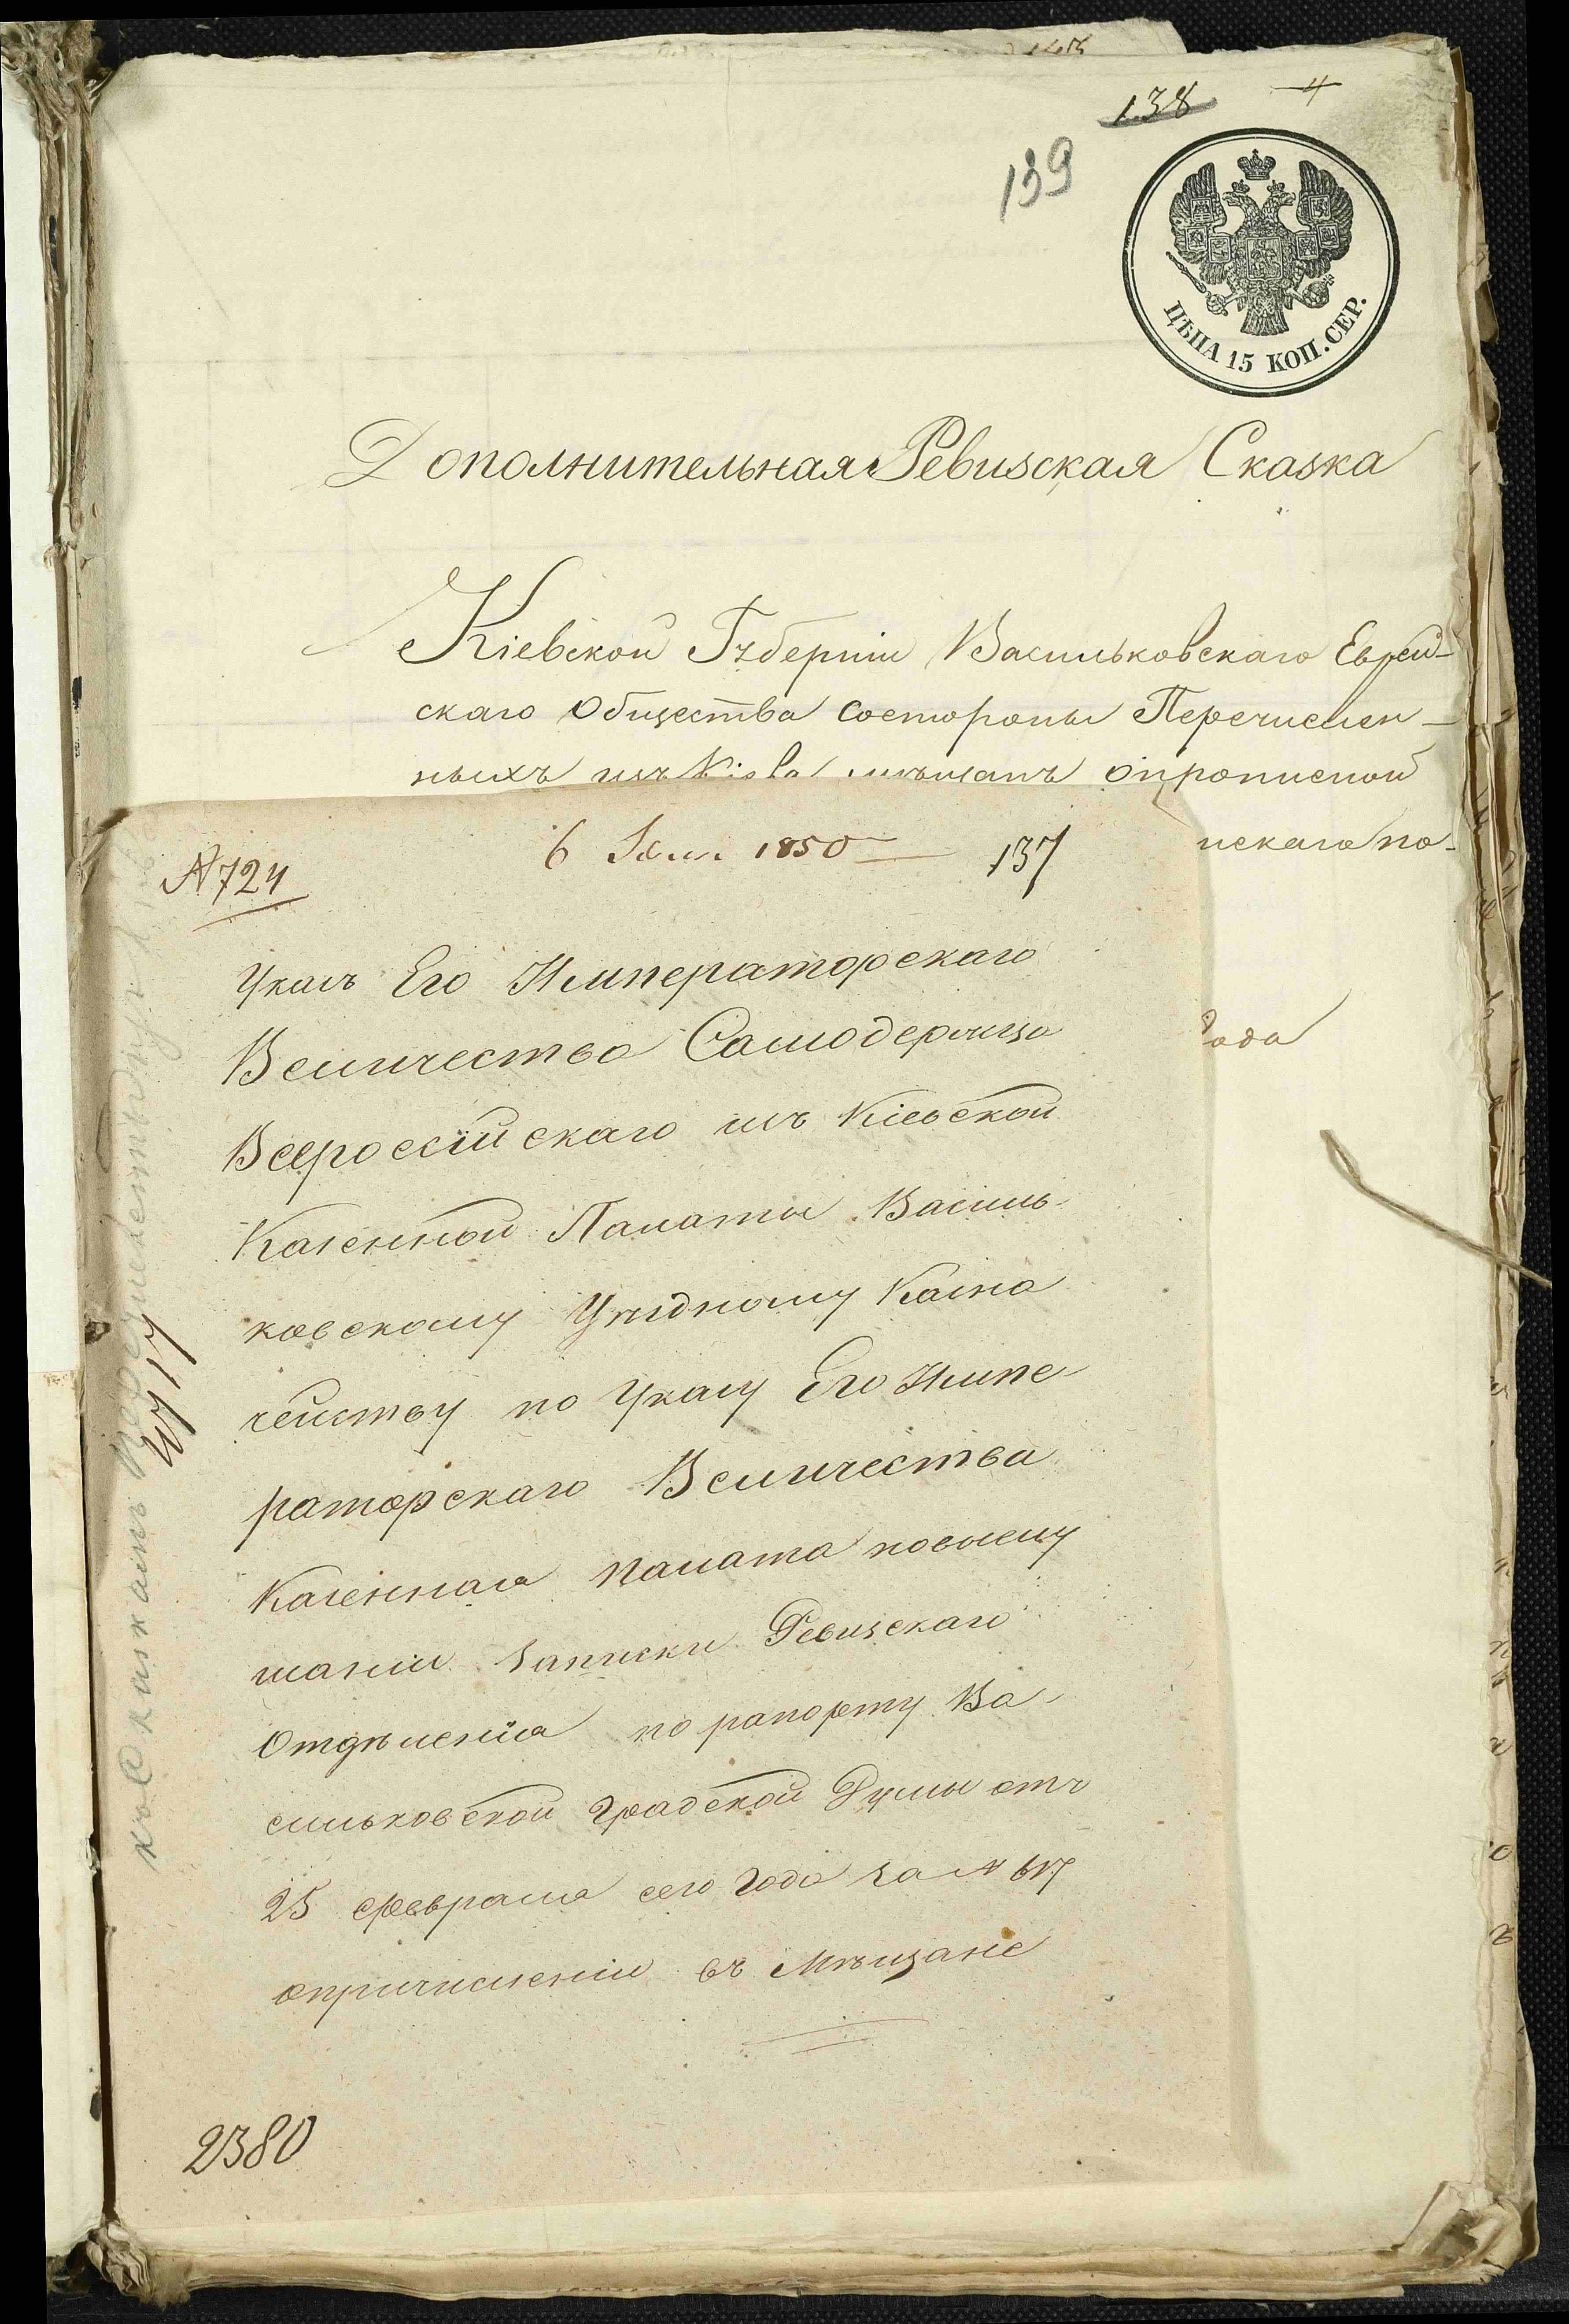 138
4
139
ЦѢНА 15 КОП. СЕР.
Дополнительная Ревизская Сказка
Кіевской Губерніи Васильковскаго Еврей-
скаго Общества состороны Перечислен-
ныхъ изъ Кіева мѣщанъ опрописной
искаго по-
года
6 1850 137
№ 724
Указъ Его Императорскаго
Величества Самодержца
Всероссійскаго изъ Кіевской
Казенной Палаты Василь-
ковскому Уѣздному Казна
чейству по Указу Его Импе-
раторскаго Величества
Казенная Палата повыслу
шаніи Записки Ревизскаго
Отдѣленія по рапорту Ва-
сильковской Градской Думы отъ
25 февраля сего года за № 617
опричисленіи въ Мѣщане
2380